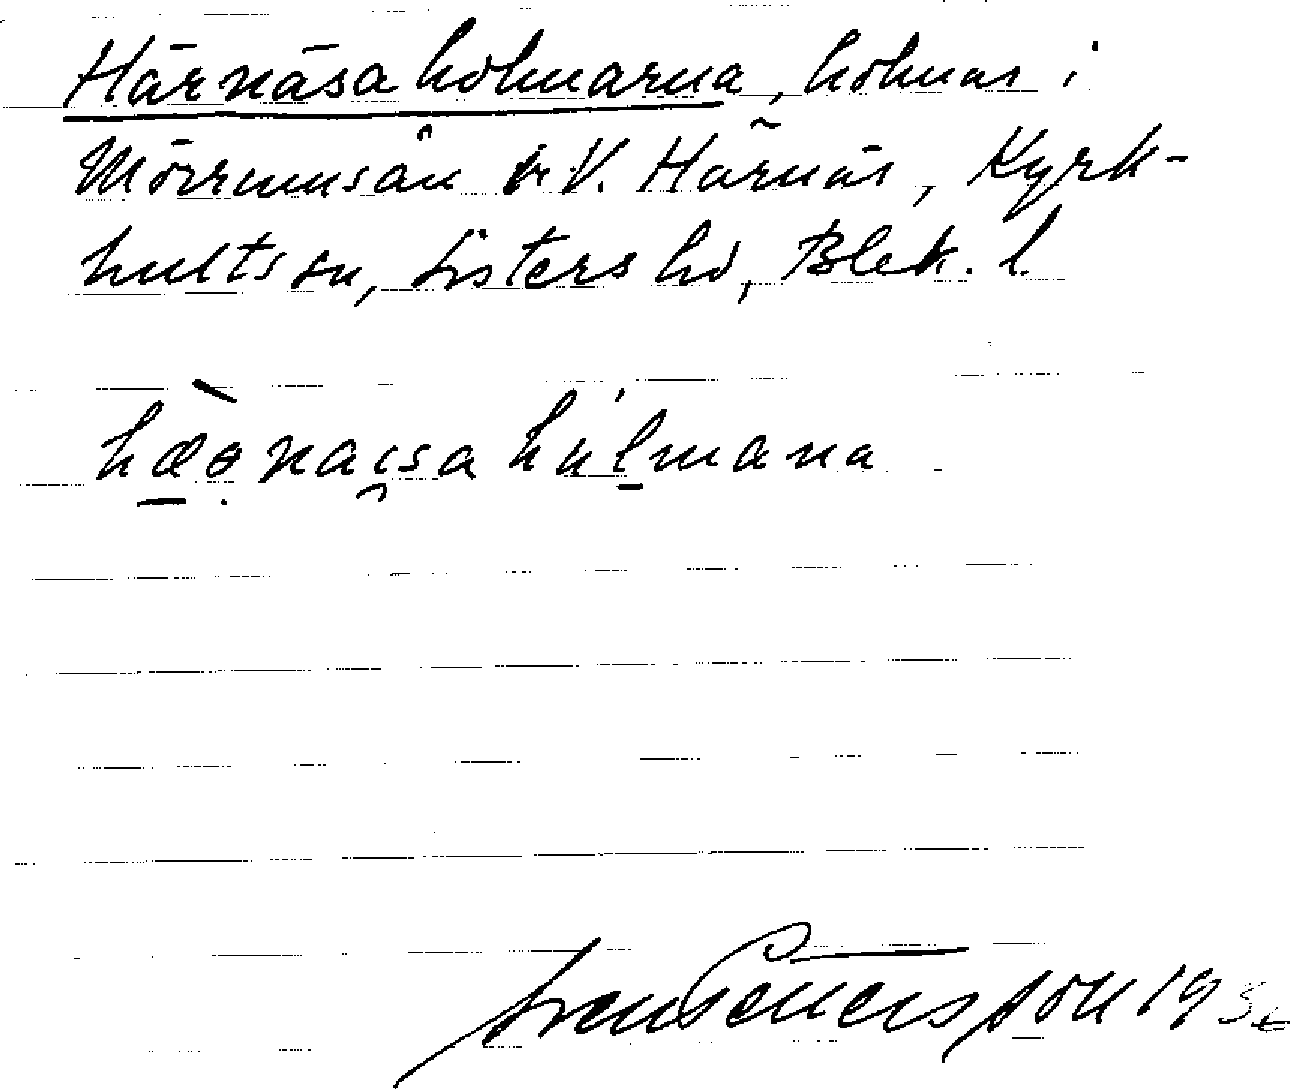 Härnäsa holmarna, holmar i
Mörrumsån V. Härnäs, Kyrk-
hults sn, Listers hd, Blek. l.
Sven Pettersson 193